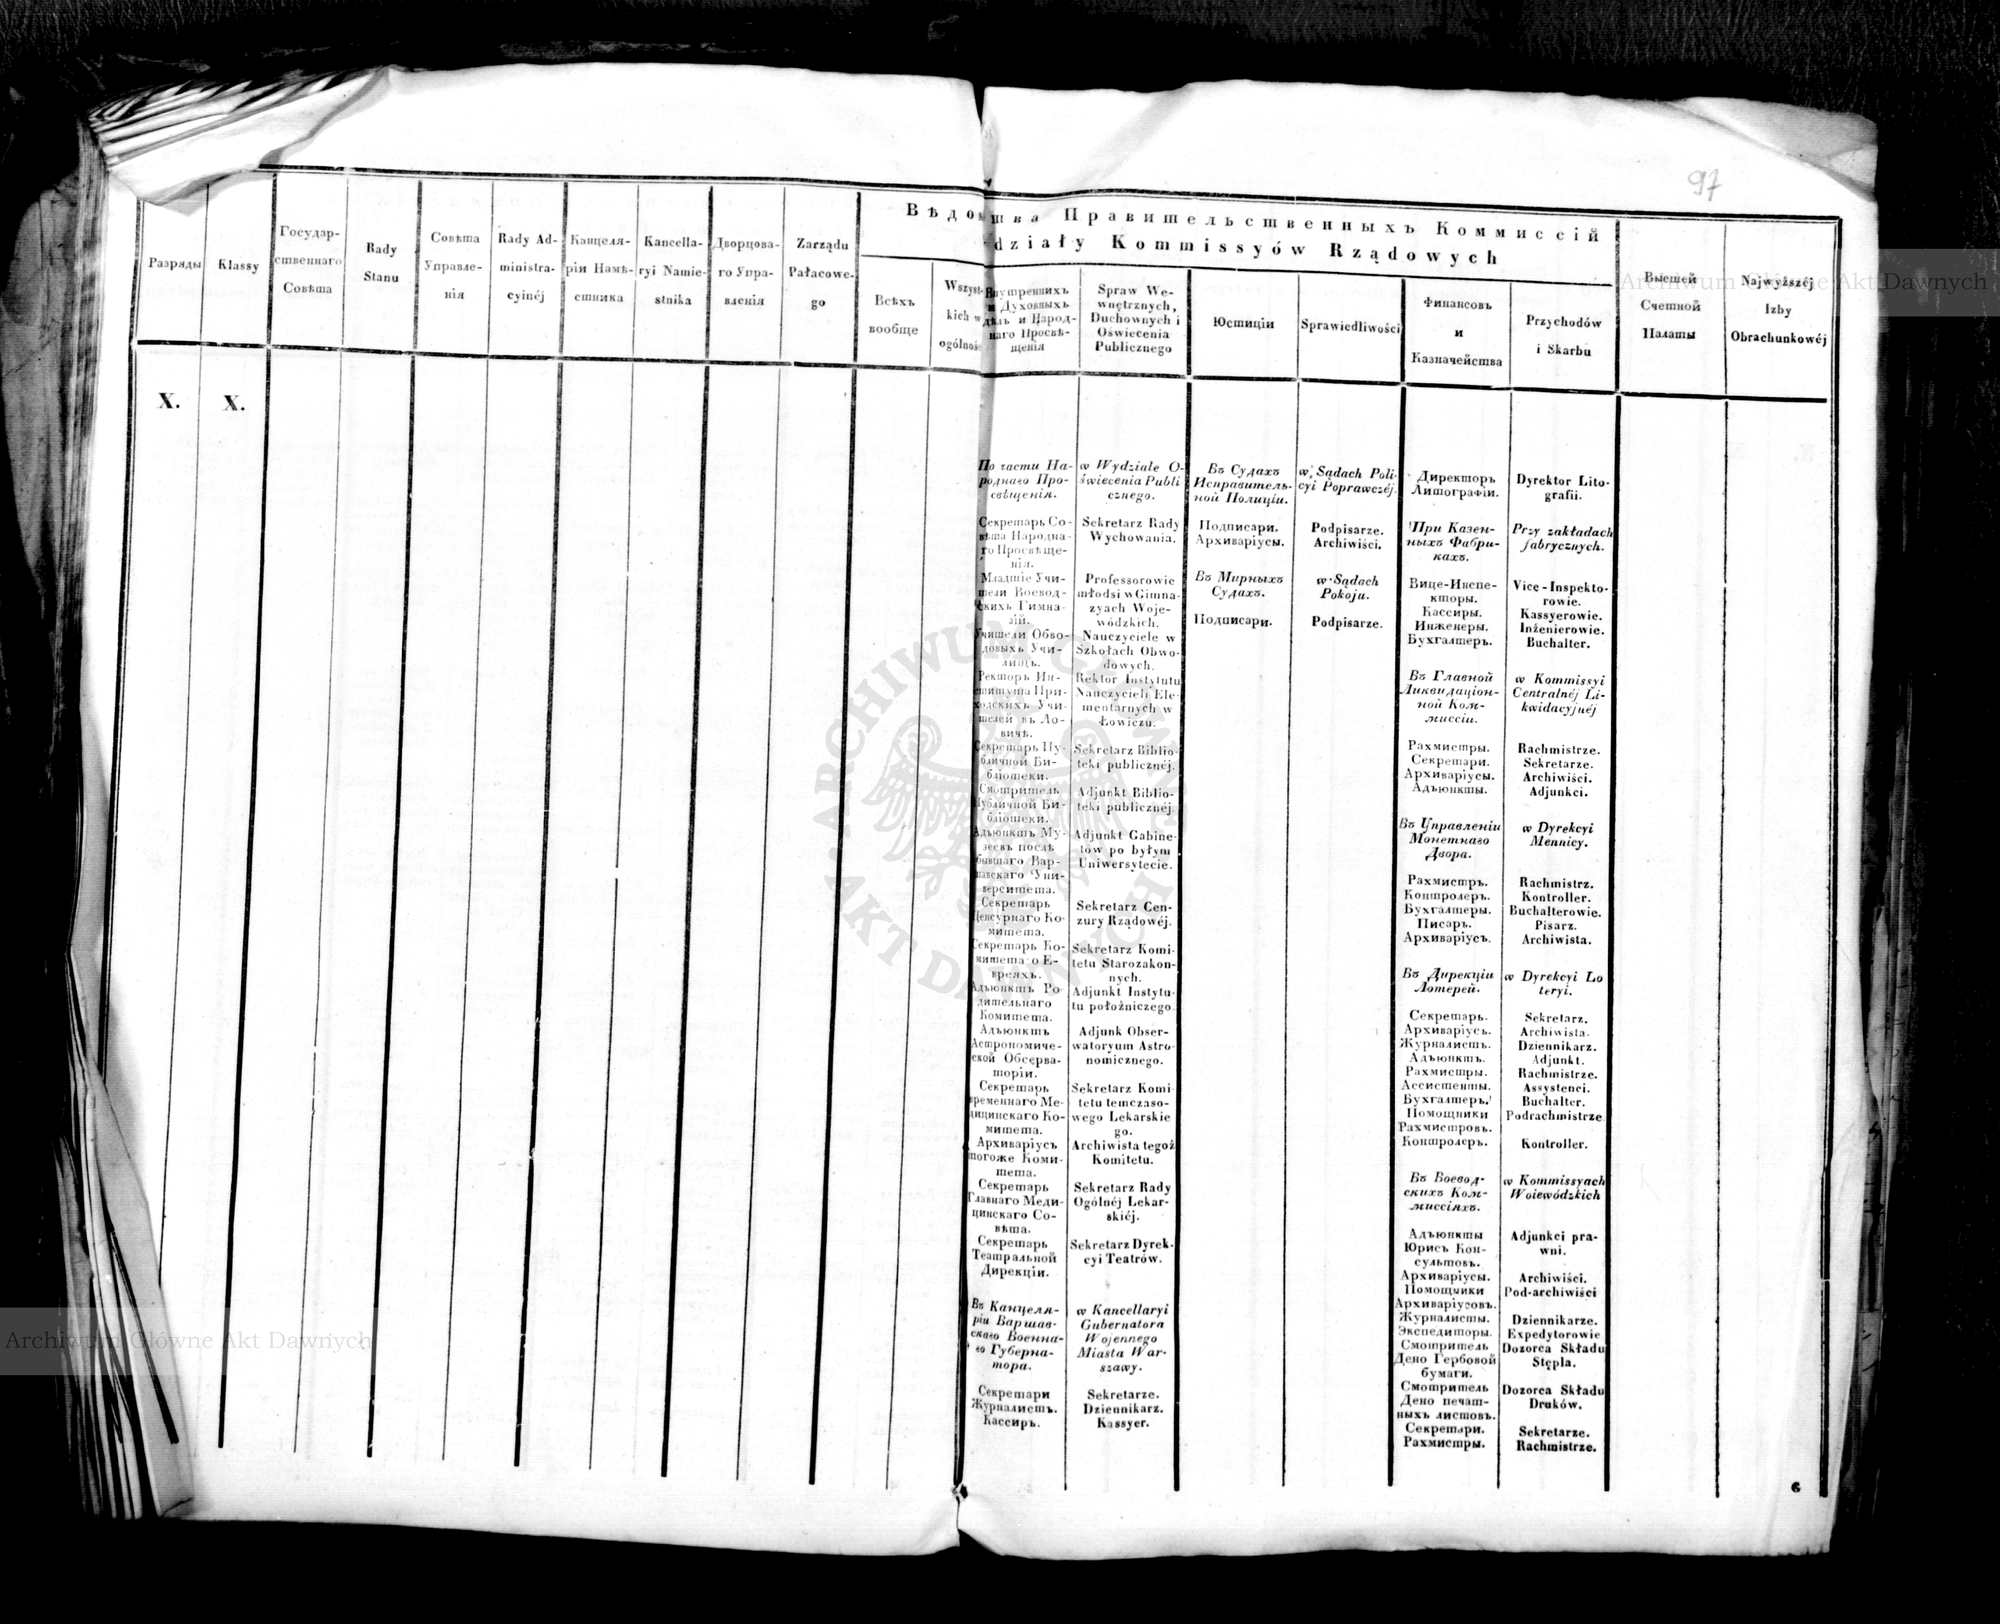 97
Вѣдомства Правительственныхъ Коммиссій
działy Kommissyów Rządowych
Разряды
Klassy
Государ-
ственнаго
Совѣта
Rady
Stanu
Совѣта
Управле-
нія
Rady Ad-
ministra-
cyinéj
Канцеля-
ріи Намѣ-
стника
Kancella-
ryi Namie-
stnika
Дворцова-
го Упра-
вленія
Zarządu
Pałacowe-
go
Всѣхъ
вообще
Wszyst-
kich w
ogólnoś
Внутреннихъ
и Духовныхъ
дѣлъ и Народ-
наго Просвѣ-
щенія
Spraw We-
wnętrznych,
Duchownych i
Oświecenia
Publicznego
Юстиціи
Sprawiedliwości
Финансовъ
и
Казначейства
Przychodów
i Skarbu
Высшей
Счетной
Палаты
Najwyższéj
Izby
Obrachunkowéj
X.
X.
По части На-
роднаго Про-
свѣщенія.
Секретарь Со-
вѣта Народна-
го Просвѣще-
нія.
Младшіе Учи-
тели Воевод-
скихъ Гимна-
зій.
Учители Обво-
довыхъ Учи-
лищъ.
Ректоръ Ин-
ститута При-
ходскихъ Учи-
телей въ Ло-
вичѣ.
Секретарь Пу-
бличной Би-
бліотеки.
Смотритель
Публичной Би-
бліотеки.
Адъюнктъ Му-
зеевъ послѣ
бывшаго Вар-
шавскаго Уни-
верситета.
Секретарь
Ценсурнаго Ко-
митета.
Секретарь Ко-
митета о Е-
вреяхъ.
Адъюнктъ Ро
дительнаго
Комитета.
Адъюнктъ
Астрономиче-
ской Обсерва-
торіи.
Секретарь
временнаго Ме-
дицинскаго Ко-
митета.
Архиваріусъ
тогоже Коми-
тета.
Секретарь
Главнаго Меди-
цинскаго Со-
вѣта.
Секретарь
Театральной
Дирекціи.
Въ Канцеля-
ріи Варшав-
скаго Военна-
го Губерна-
тора.
Секретари
Журналистъ.
Кассиръ.
w Wydziale O-
świecenia Publi
cznego.
Sekretarz Rady
Wychowania.
Professorowie
młodsi w Gimna-
zyach Woje-
wódzkich.
Nauczyciele w
Szkołach Obwo-
dowych.
Rektor Instytutu
Nauczycieli Ele-
mentarnych w
Łowiczu.
Sekretarz Biblio-
teki publicznéj.
Adjunkt Biblio-
teki publicznéj.
Adjunkt Gabine-
tów po byłym
Uniwersytecie.
Sekretarz Cen-
zury Rządowéj.
Sekretarz Komi-
tetu Starozakon-
nych.
Adjunkt Instytu-
tu położniczego.
Adjunk Obser-
watoryum Astro-
nomicznego.
Sekretarz Komi-
tetu temczaso-
wego Lekarskie
go.
Archiwista tegoż
Komitetu.
Sekretarz Rady
Ogólnéj Lekar-
skiéj.
Sekretarz Dyrek-
cyi Teatrów.
w Kancellaryi
Gubernatora
Wojennego
Miasta War-
szawy.
Sekretarze.
Dziennikarz.
Kassyer.
Въ Судахъ
Исправитель-
ной Полиціи.
Подписари.
Архиваріусы.
Въ Мирныхъ
Судахъ.
Подписари.
w Sądach Poli-
cyi Poprawczéj.
Podpisarze.
Archiwiści.
w Sądach
Pokoju.
Podpisarze.
Директоръ
Литографіи.
При Казен-
ныхъ Фабри-
кахъ.
Вице-Инспе-
кторы.
Кассиры.
Инженеры.
Бухгалтеръ.
Въ Главной
Ликвидаціон-
ной Ком-
миссіи.
Рахмистры.
Секретари.
Архиваріусы.
Адъюнкты.
Въ Управленіи
Монетнаго
Двора.
Рахмистръ.
Контролеръ.
Бухгалтеры.
Писарь.
Архиваріусъ.
Въ Дирекціи
Лотерей.
Секретарь.
Архиваріусъ.
Журналистъ.
Адъюнктъ.
Рахмистры.
Ассистенты.
Бухгалтеръ.
Помощники
Рахмистровъ.
Контролеръ.
Въ Воевод-
скихъ Ком-
миссіяхъ.
Адъюнкты
Юрисъ Кон-
сультовъ.
Архиваріусы.
Помощники
Архиваріусовъ.
Журналисты.
Экспедиторы.
Смотритель
Депо Гербовой
бумаги.
Смотритель
Депо печат-
ныхъ листовъ.
Секретари.
Рахмистры.
Dyrektor Lito-
grafii.
Przy zakładach
fabrycznych.
Vice-Inspekto-
rowie.
Kassyerowie.
Inżenierowie.
Buchalter.
w Kommissyi
Centralnéj Li-
kwidacyjnéj
Rachmistrze.
Sekretarze.
Archiwiści.
Adjunkci.
w Dyrekcyi
Mennicy.
Rachmistrz.
Kontroller.
Buchalterowie.
Pisarz.
Archiwista.
w Dyrekcyi Lo
teryi.
Sekretarz.
Archiwista.
Dziennikarz.
Adjunkt.
Rachmistrze.
Assystenci.
Buchalter.
Podrachmistrze
Kontroller.
w Kommissyach
Woiewódzkich
Adjunkci pra-
wni.
Archiwiści.
Pod-archiwiści
Dziennikarze.
Expedytorowie
Dozorca Składu
Stępla.
Dozorca Składu
Druków.
Sekretarze.
Rachmistrze.
6
Archiwum Główne Akt Dawnych
Archiwum Główne Akt Dawnych
ARCHIWUM GŁÓWNE AKT DAWNYCH